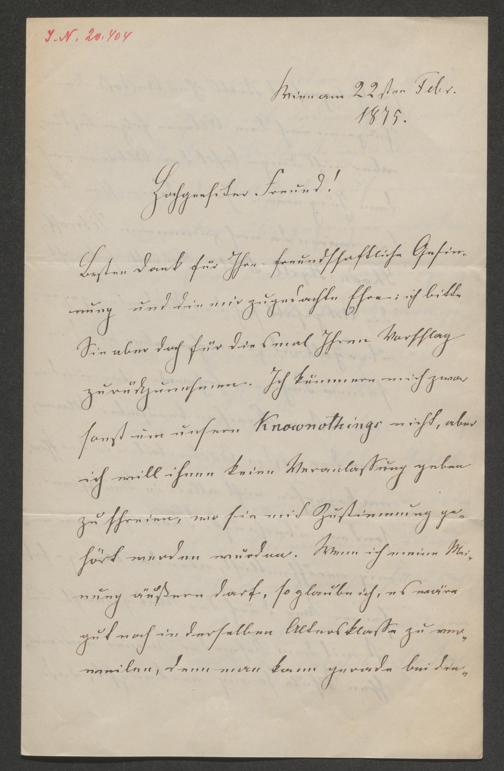 J. N. 20.404
Wien am 22sten Febr.
1875.
Hochgeehrter Freund!
Besten Dank für Ihre freundschaftliche Gesin-
nung und die mir zugedachte Ehre; ich bitte
Sie aber doch für diesmal Ihren Vorschlag
zurückzunehmen. Ich kümmere mich zwar
sonst um unsere Knownothings nicht, aber
ich will ihnen keine Veranlassung geben
zu schreien, wo sie mit Zustimmung ge-
hört werden würden. Wenn ich meine Mei-
nung äußern darf, so glaube ich, es wäre
gut noch in derselben Altersklasse zu ver-
weilen, denn man kann gerade bei die-